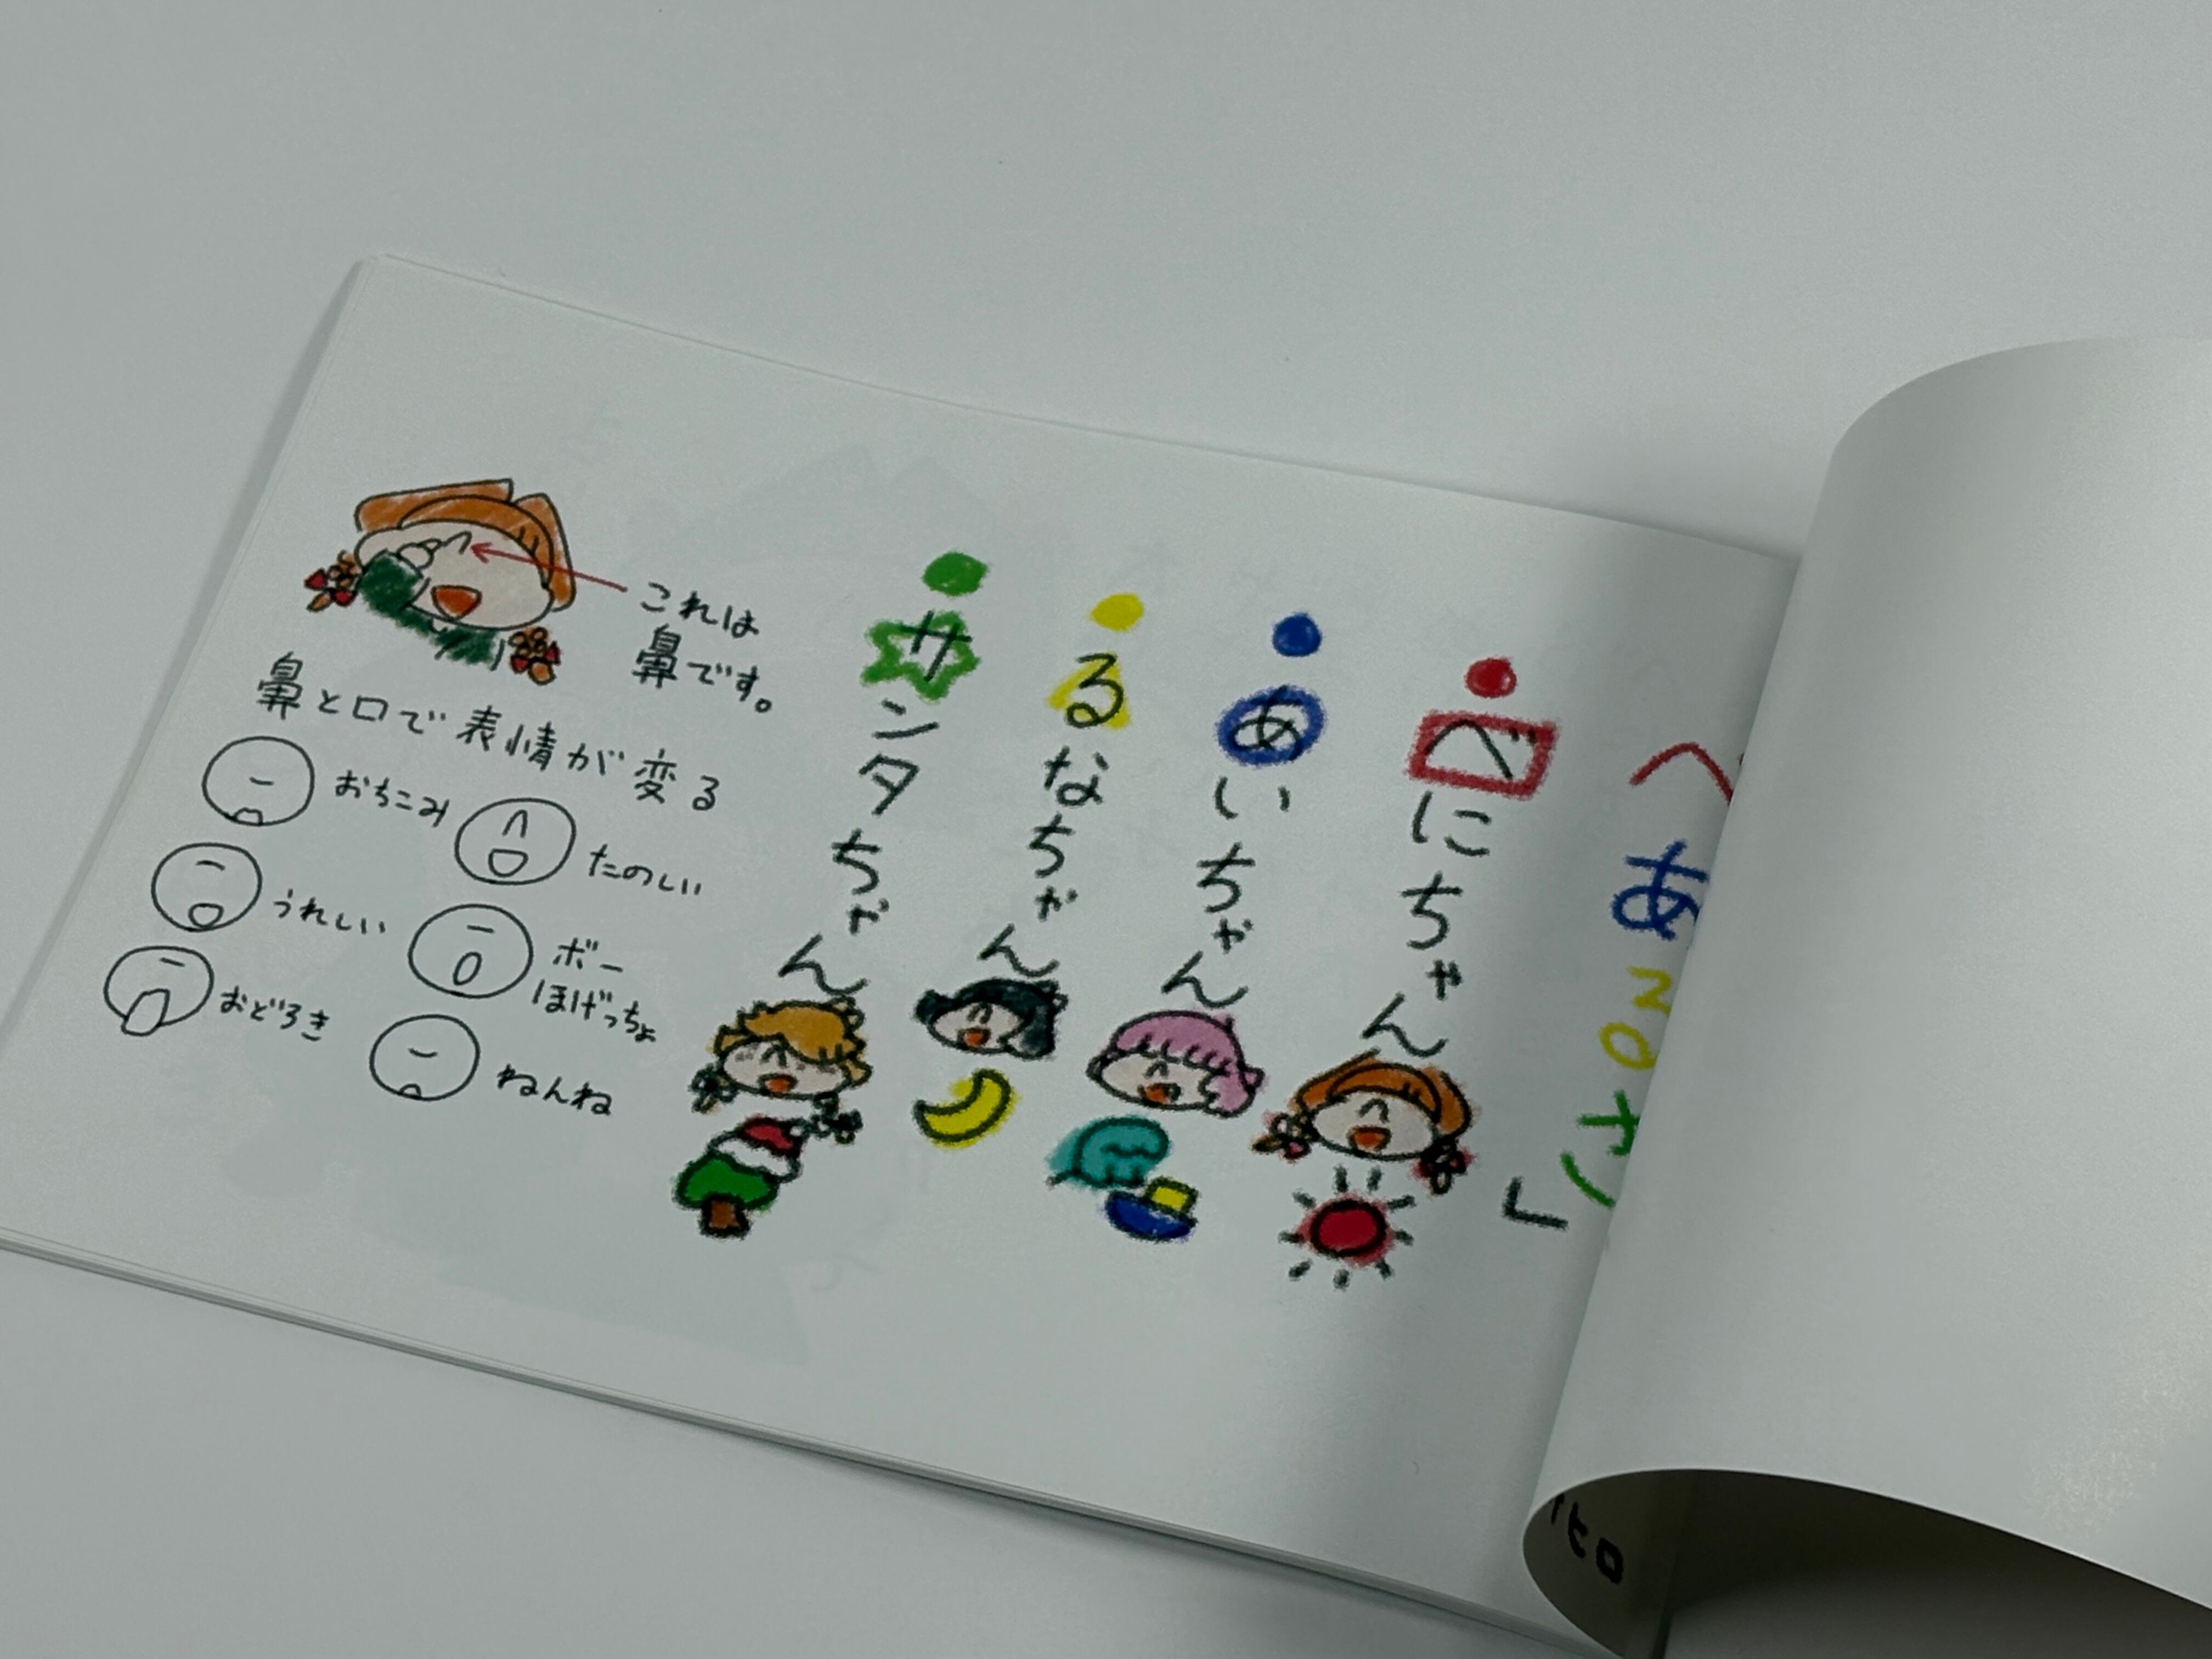 べにちゃん
あいちゃん
るなちゃん
サンタちゃん
これは
鼻です。
鼻と口で表情が変る
おちこみ
たのしい
うれしい
ボー
ほげっちょ
おどろき
ねんね